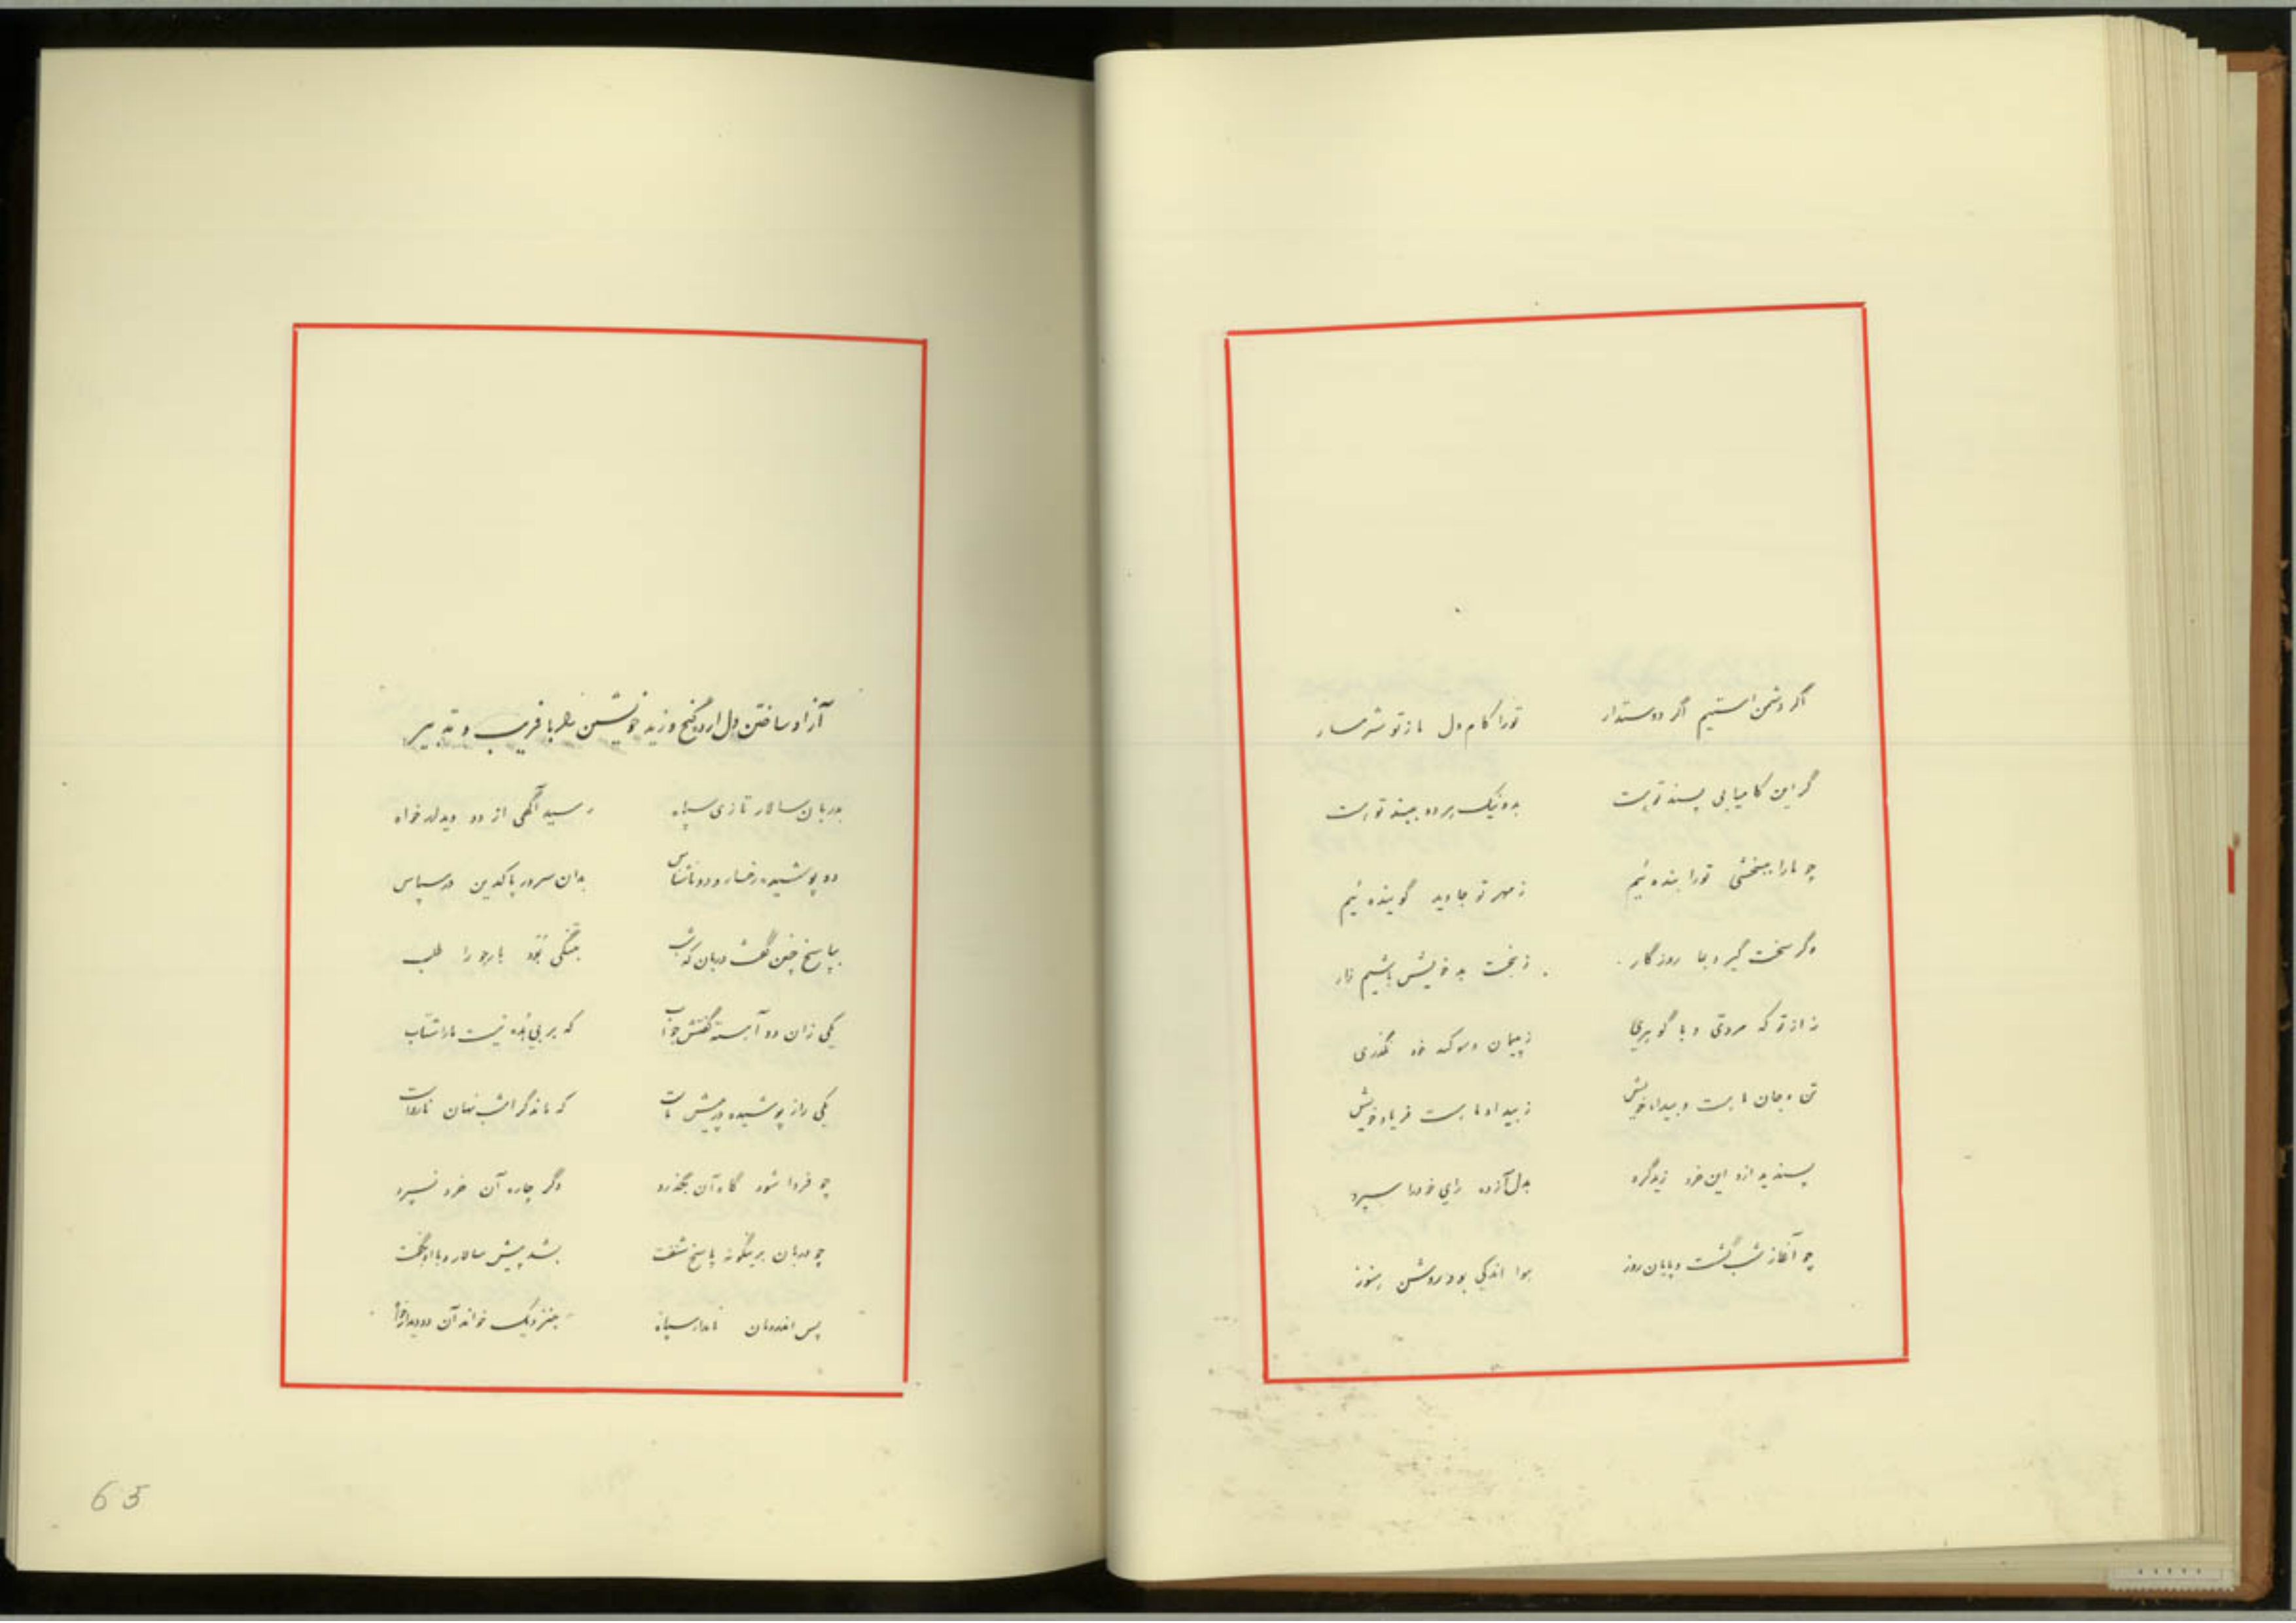 اگر دشمن استیم اگر دوستدار تورا کام دل ما ز تو شرمسار
گر این کامیابی پسند تو است بد و نیک بر ده ببند تو است
چو مارا ببخشی تورا بنده ئیم ز مهر تو جاوید گوینده ئیم
وگر سخت گیرد بما روزگار ز بخت بد خویش باشیم زار
نه از تو که مردی و با گوهری ز پیمان و سوگند خود نگذری
تن و جان ما هست و بیداد خویش ز بیداد ما هست فریاد خویش
پسندید ازو این خرد زید گرد بدل آزده رای خودرا سپرد
چو آغاز شب گشت و پایان روز هوا اندکی بود روشن هنوز
آزاد ساختن دل ارد گنج و زید خویشتن با فریب و تدبیر
بدربان سالار تازی سپاه رسید آگهی از دو دیدار خواه
دو پوشیده رخسار و دو ناشناس بدان سرور پاکدین در سپاس
بپاسخ چنین گفت دربان که شب جنگی بود بارجو را طلب
یکی زان دو آهسته گفتش جواب که بر بیهده نیست مارا شتاب
یکی راز پوشیده در پیش ماست که ماند گر امشب نهان نارواست
چو فردا شود گاه آن بگذرد دگر چاره آن خرد نسپرد
چو دربان برینگونه پاسخ شنفت بشد پیش سالار و با او بگفت
پس اندر زمان نامدار سپاه بنزدیک خواند آن دو دیدار خواه
65